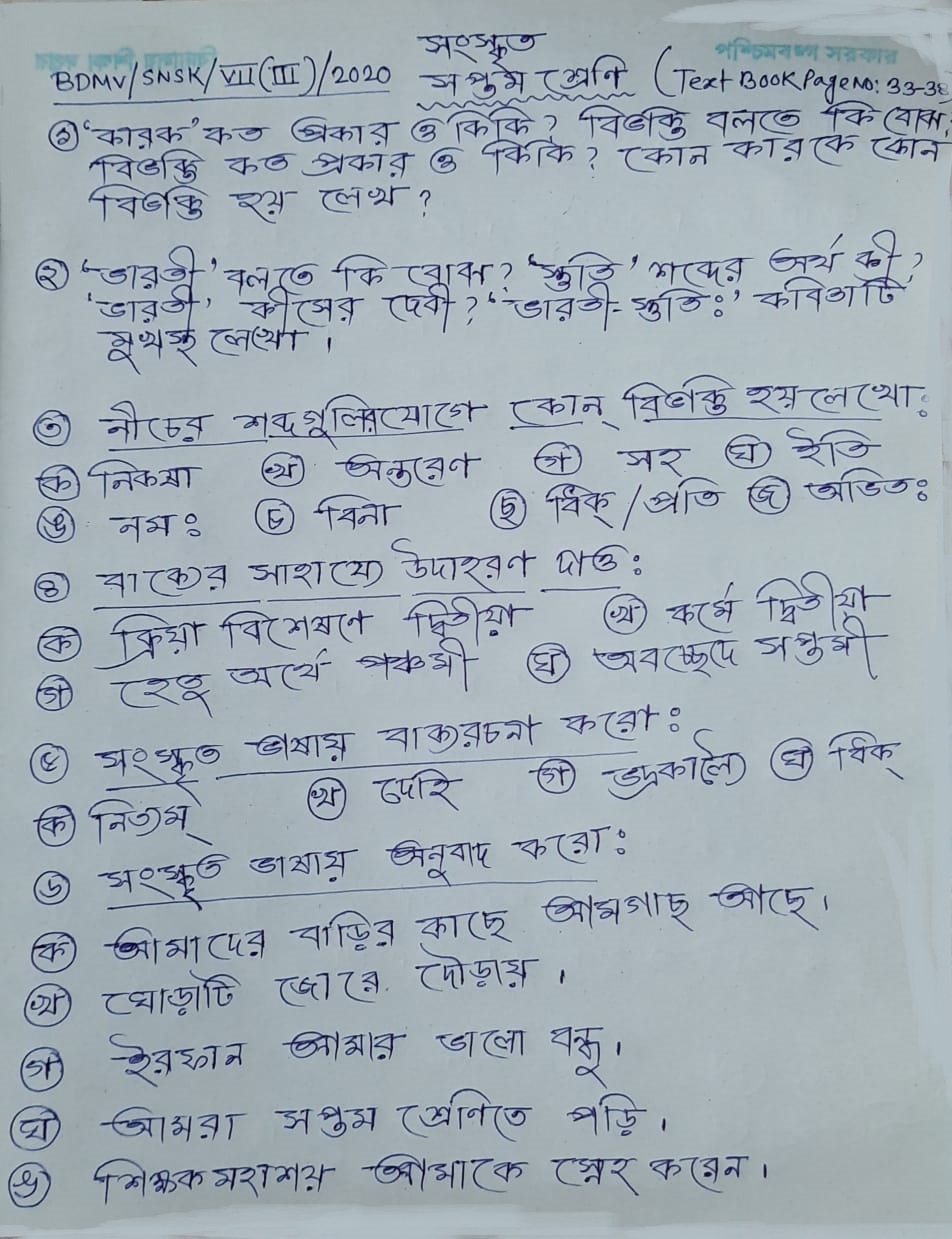 সংস্কৃত
পশ্চিমবঙ্গ সরকার
BDMV/SNSK/VII(III)/2020 সপ্তম শ্রেণি (Text Book Page no: 33-38
১ 'কারক' কত প্রকার ও কিকি? বিভক্তি বলতে কি বোঝ?
বিভক্তি কত প্রকার ও কিকি? কোন কারকে কোন
বিভক্তি হয় লেখ?
২ 'ভারতী' বলতে কি বোঝ? 'স্তুতি' শব্দের অর্থ কী?
'ভারতী' কীসের দেবী? 'ভারতী-স্তুতিঃ' কবিতাটি
মুখস্থ লেখো।
৩ নীচের শব্দগুলিরযোগে কোন্ বিভক্তি হয় লেখো:
ক নিকষা খ অন্তরেণ গ সহ ঘ ইতি
ঙ নমঃ চ বিনা ছ ধিক্/প্রতি জ অভিতঃ
৪ বাক্যের সাহায্যে উদাহরণ দাও:
ক ক্রিয়া বিশেষণে দ্বিতীয়া খ কর্মে দ্বিতীয়া
গ হেতু অর্থে পঞ্চমী ঘ অবচ্ছেদে সপ্তমী
৫ সংস্কৃত ভাষায় বাক্যরচনা করো:
ক নিত্যম্ খ দেহি গ ভদ্রকাল্যৈ ঘ ধিক্
৬ সংস্কৃত ভাষায় অনুবাদ করো:
ক আমাদের বাড়ির কাছে আমগাছ আছে।
খ ঘোড়াটি জোরে দৌড়ায়।
গ ইরফান আমার ভালো বন্ধু।
ঘ আমরা সপ্তম শ্রেণিতে পড়ি।
ঙ শিক্ষক মহাশয় আমাকে স্নেহ করেন।